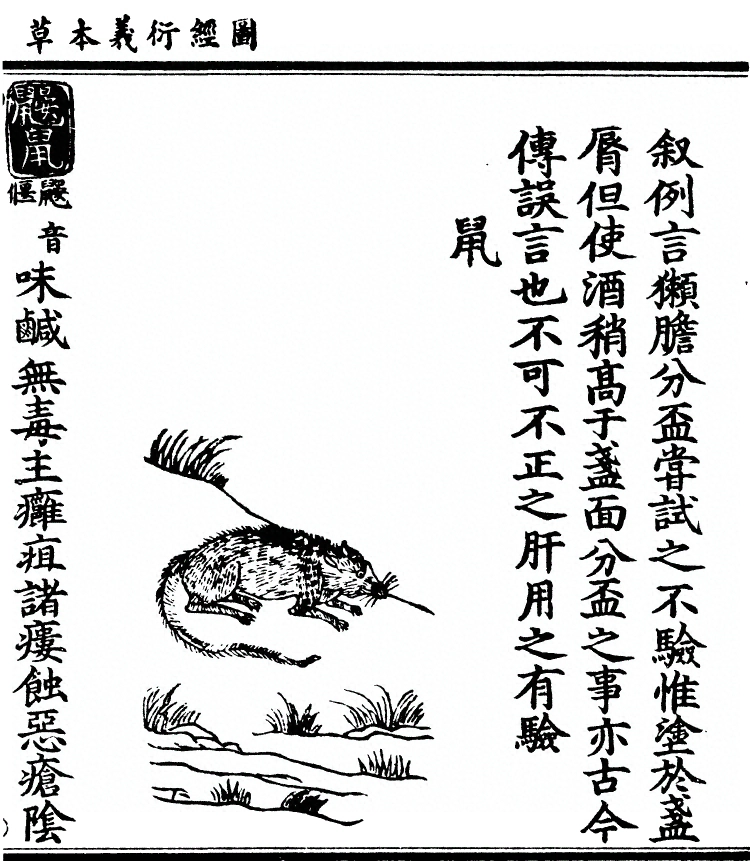 圖經衍義本草
叙例言獺膽分盃嘗試之不驗惟塗於盞
脣但使酒稍髙于盞面分盃之事亦古今
傳誤言也不可不正之肝用之有驗
鼠
鼴鼠鼴音偃味鹹無毒主癰疽諸瘻蝕惡瘡陰